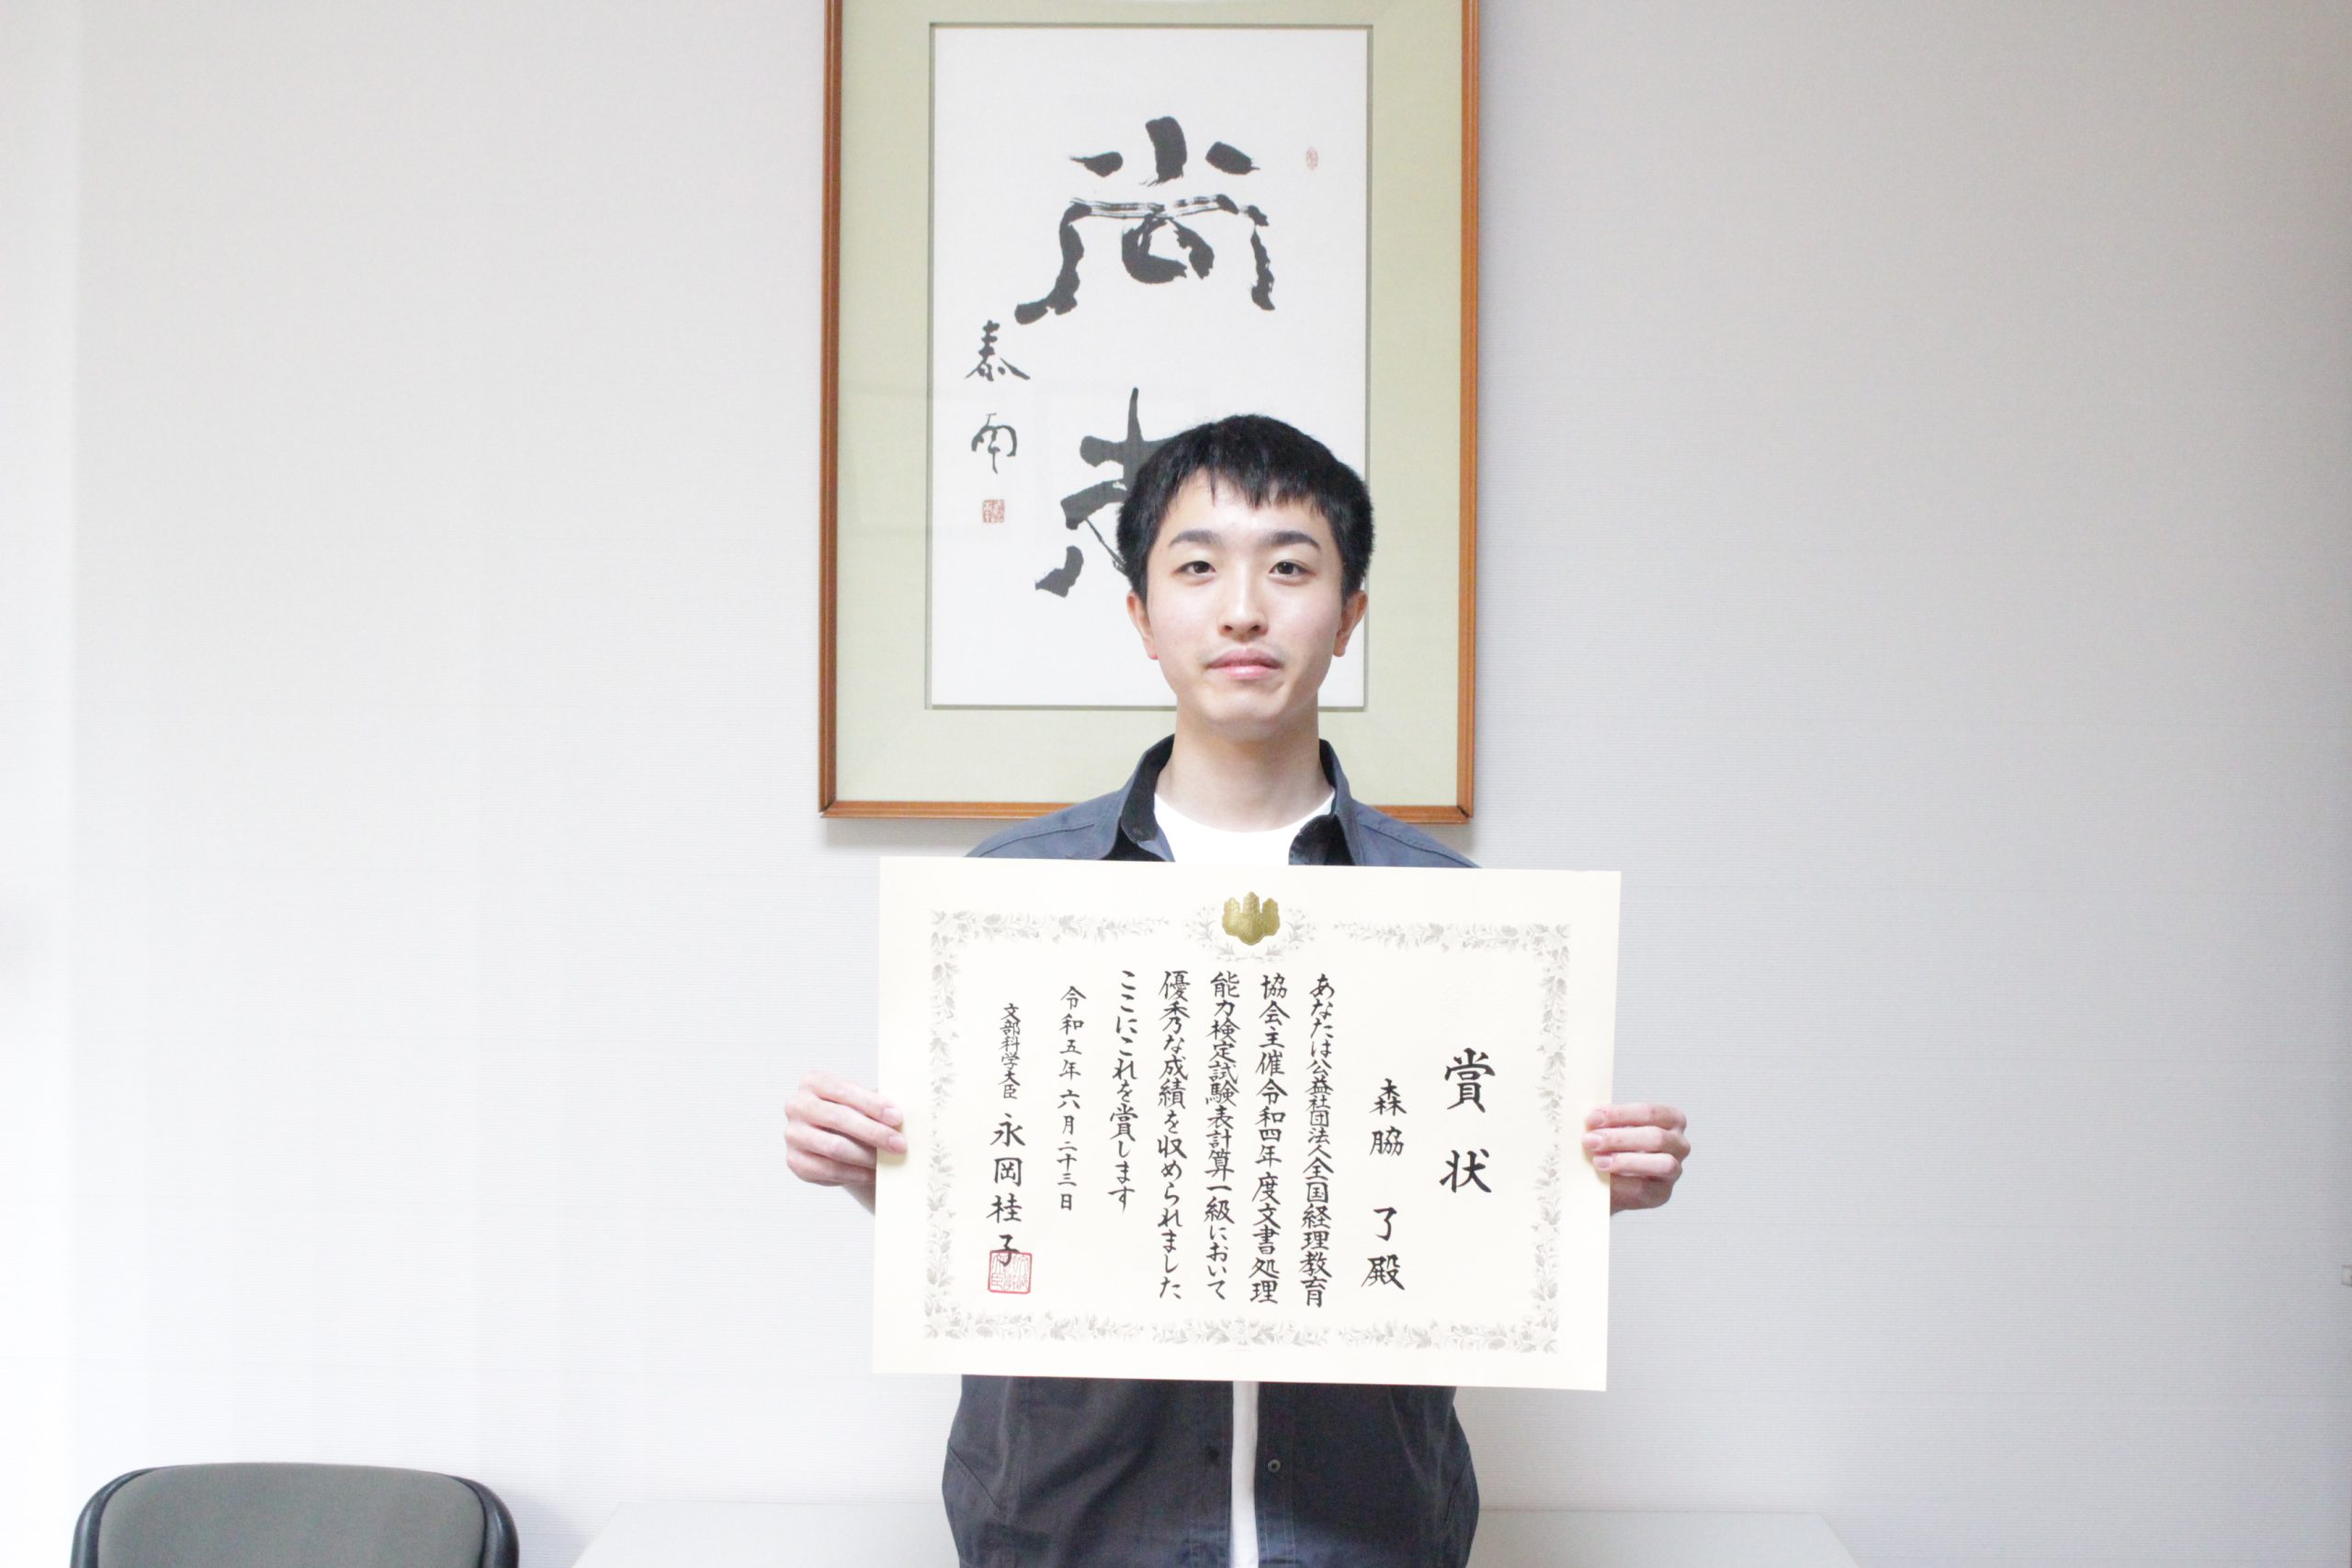 尚
志
泰
雨
賞状
森脇 了殿
あなたは公益社団法人全国経理教育
協会主催令和四年度文書処理
能力検定試験表計算一級において
優秀な成績を収められました
ここにこれを賞します
令和五年六月二十三日
文部科学大臣 永岡桂子